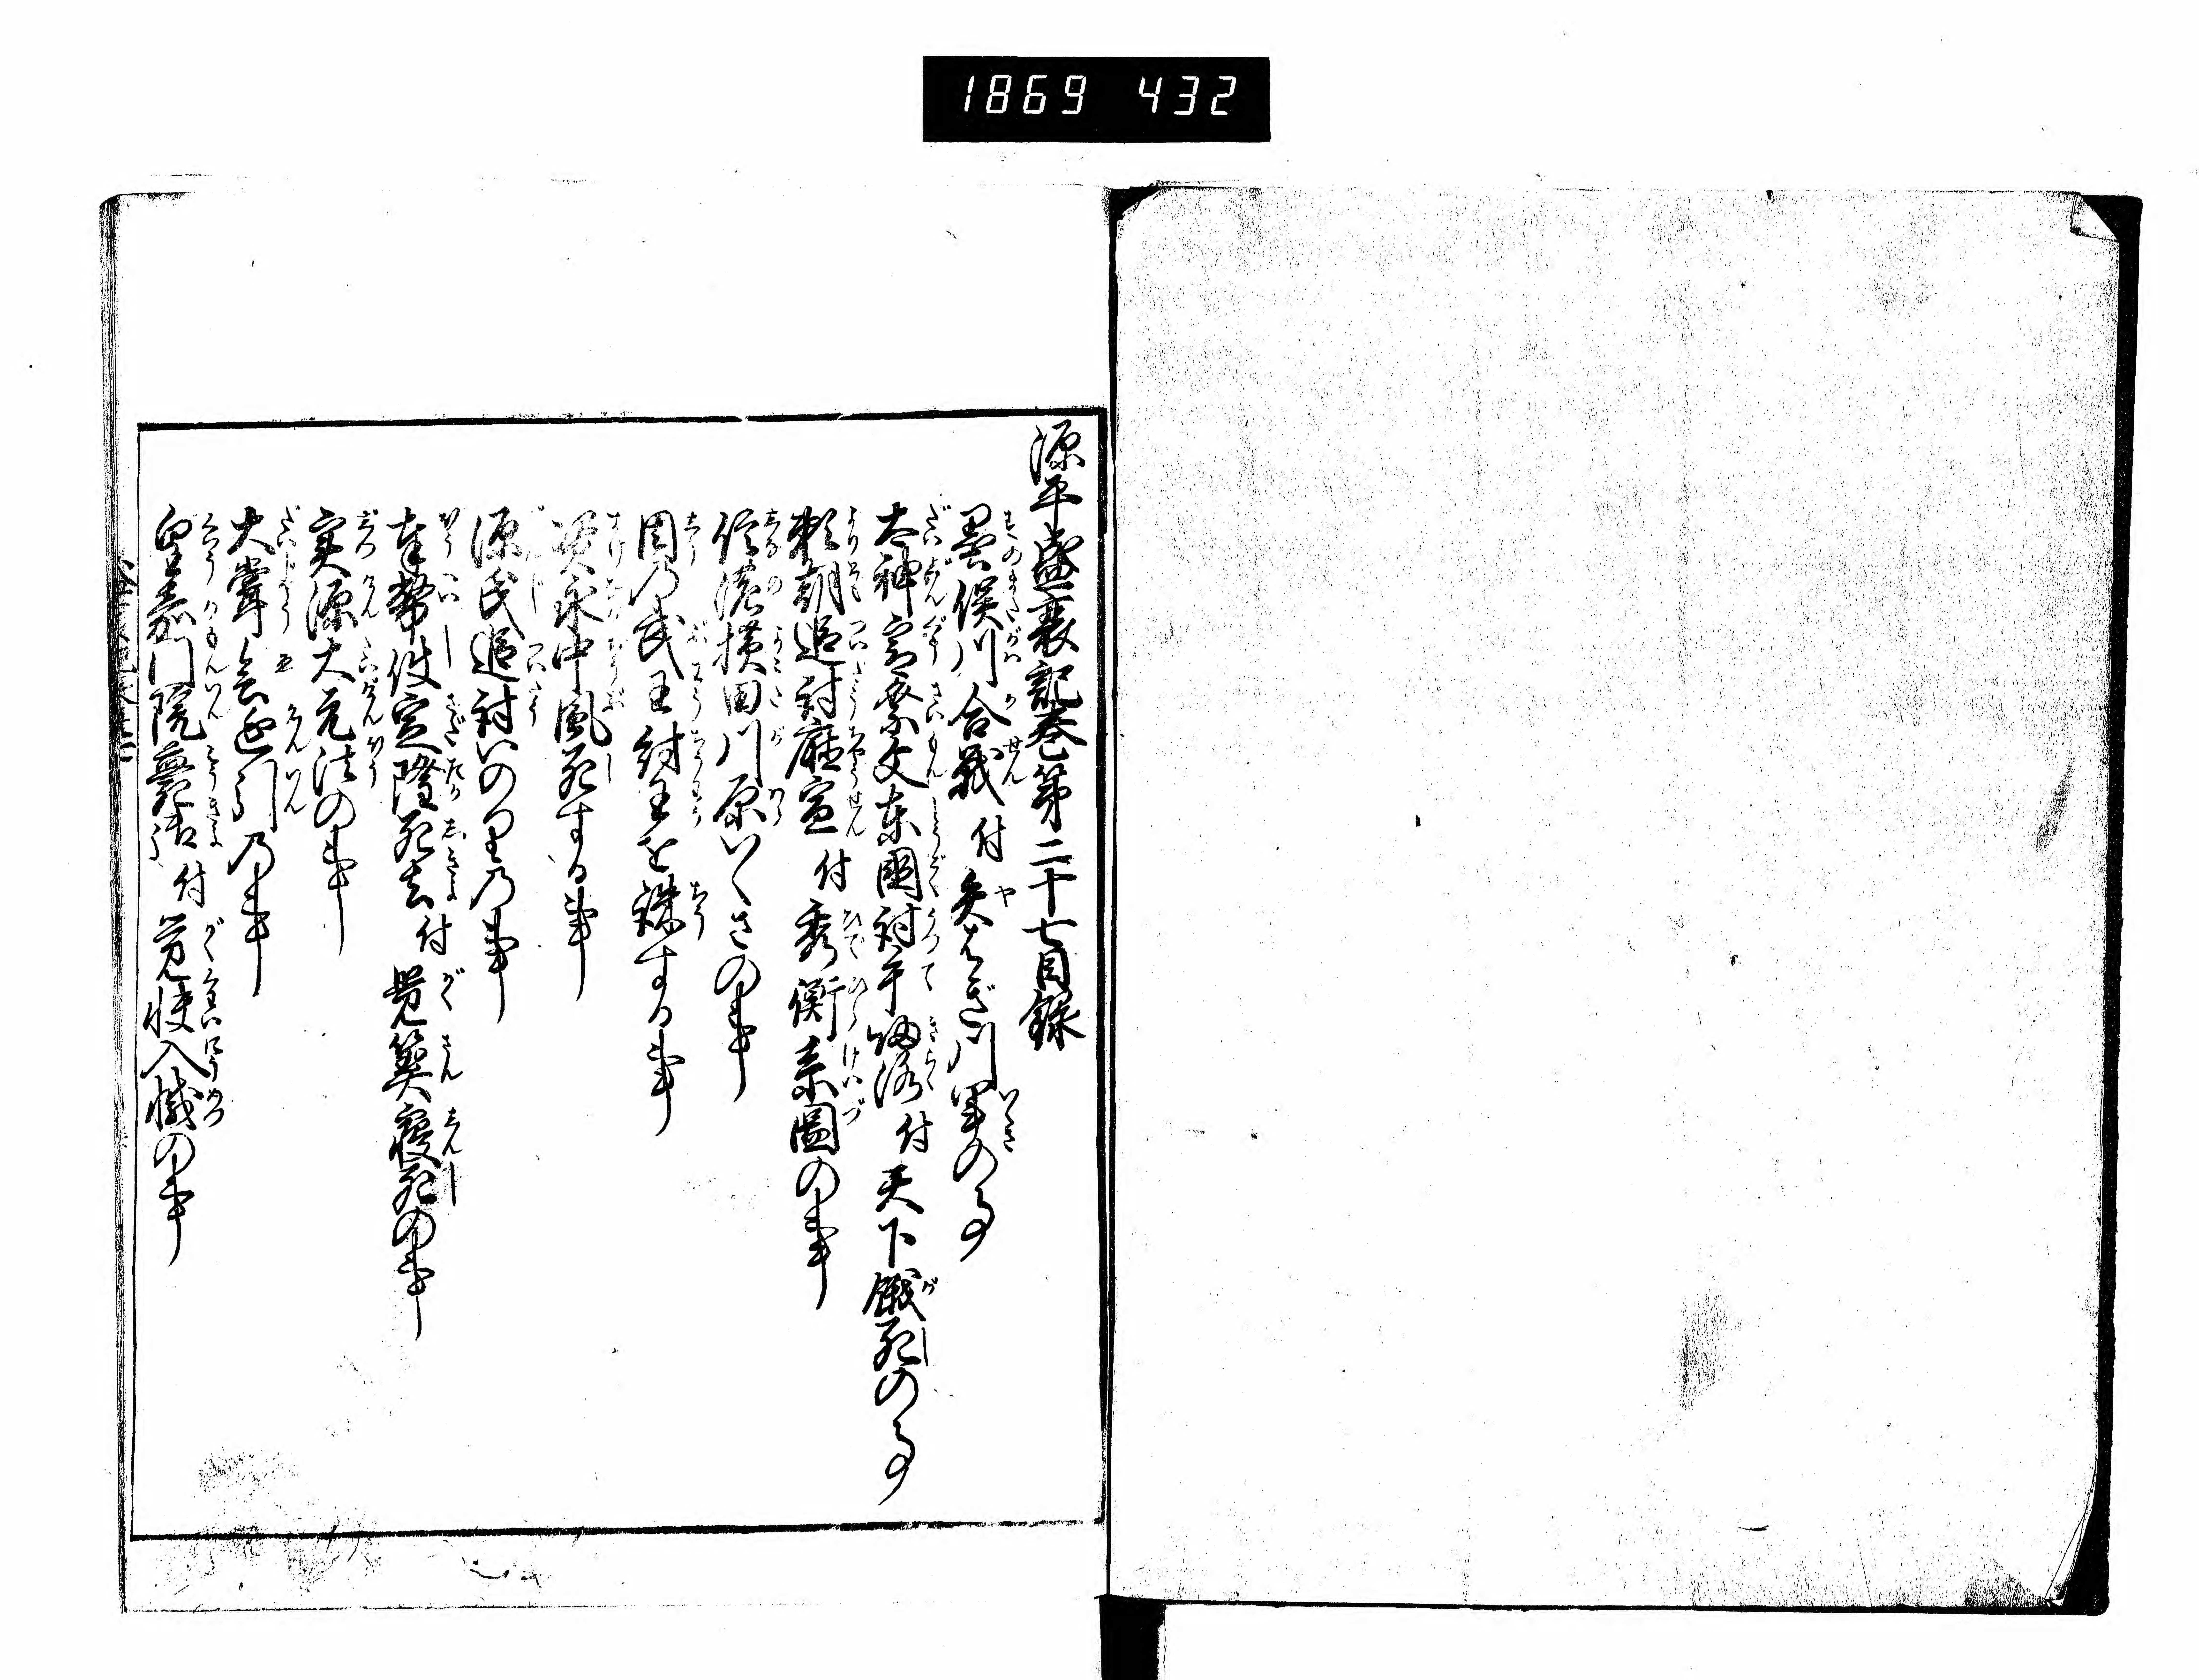 1869 432
源平盛衰記巻第二十七目録
墨俣川合戦付矢はぎ川軍の事
太神宮祭文東国討手帰洛付天下餓死の事
頼朝追討庁宣付秀衡系図の事
信濃横田川原いくさの事
周乃武王紂王を誅する事
資永中風死する事
源氏追討いのり乃事
奉幣使定隆死去付覚算寝死の事
実源大元法の事
大嘗会延引乃事
皇嘉門院薨御付覚快入滅の事